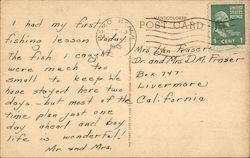 HANDCOLORED
POST CARD
I had my first
fishing lesson today.
The fish I caught
were much too
small to keep. We
have stayed here two
days - but most of the
time plan just one
day ahead and boy
life is wonderful!
Mr. and Mrs.
Mrs Fraser
Dr. and Mrs D.M. Fraser
Box 747
Livermore
California
1 CENT 1